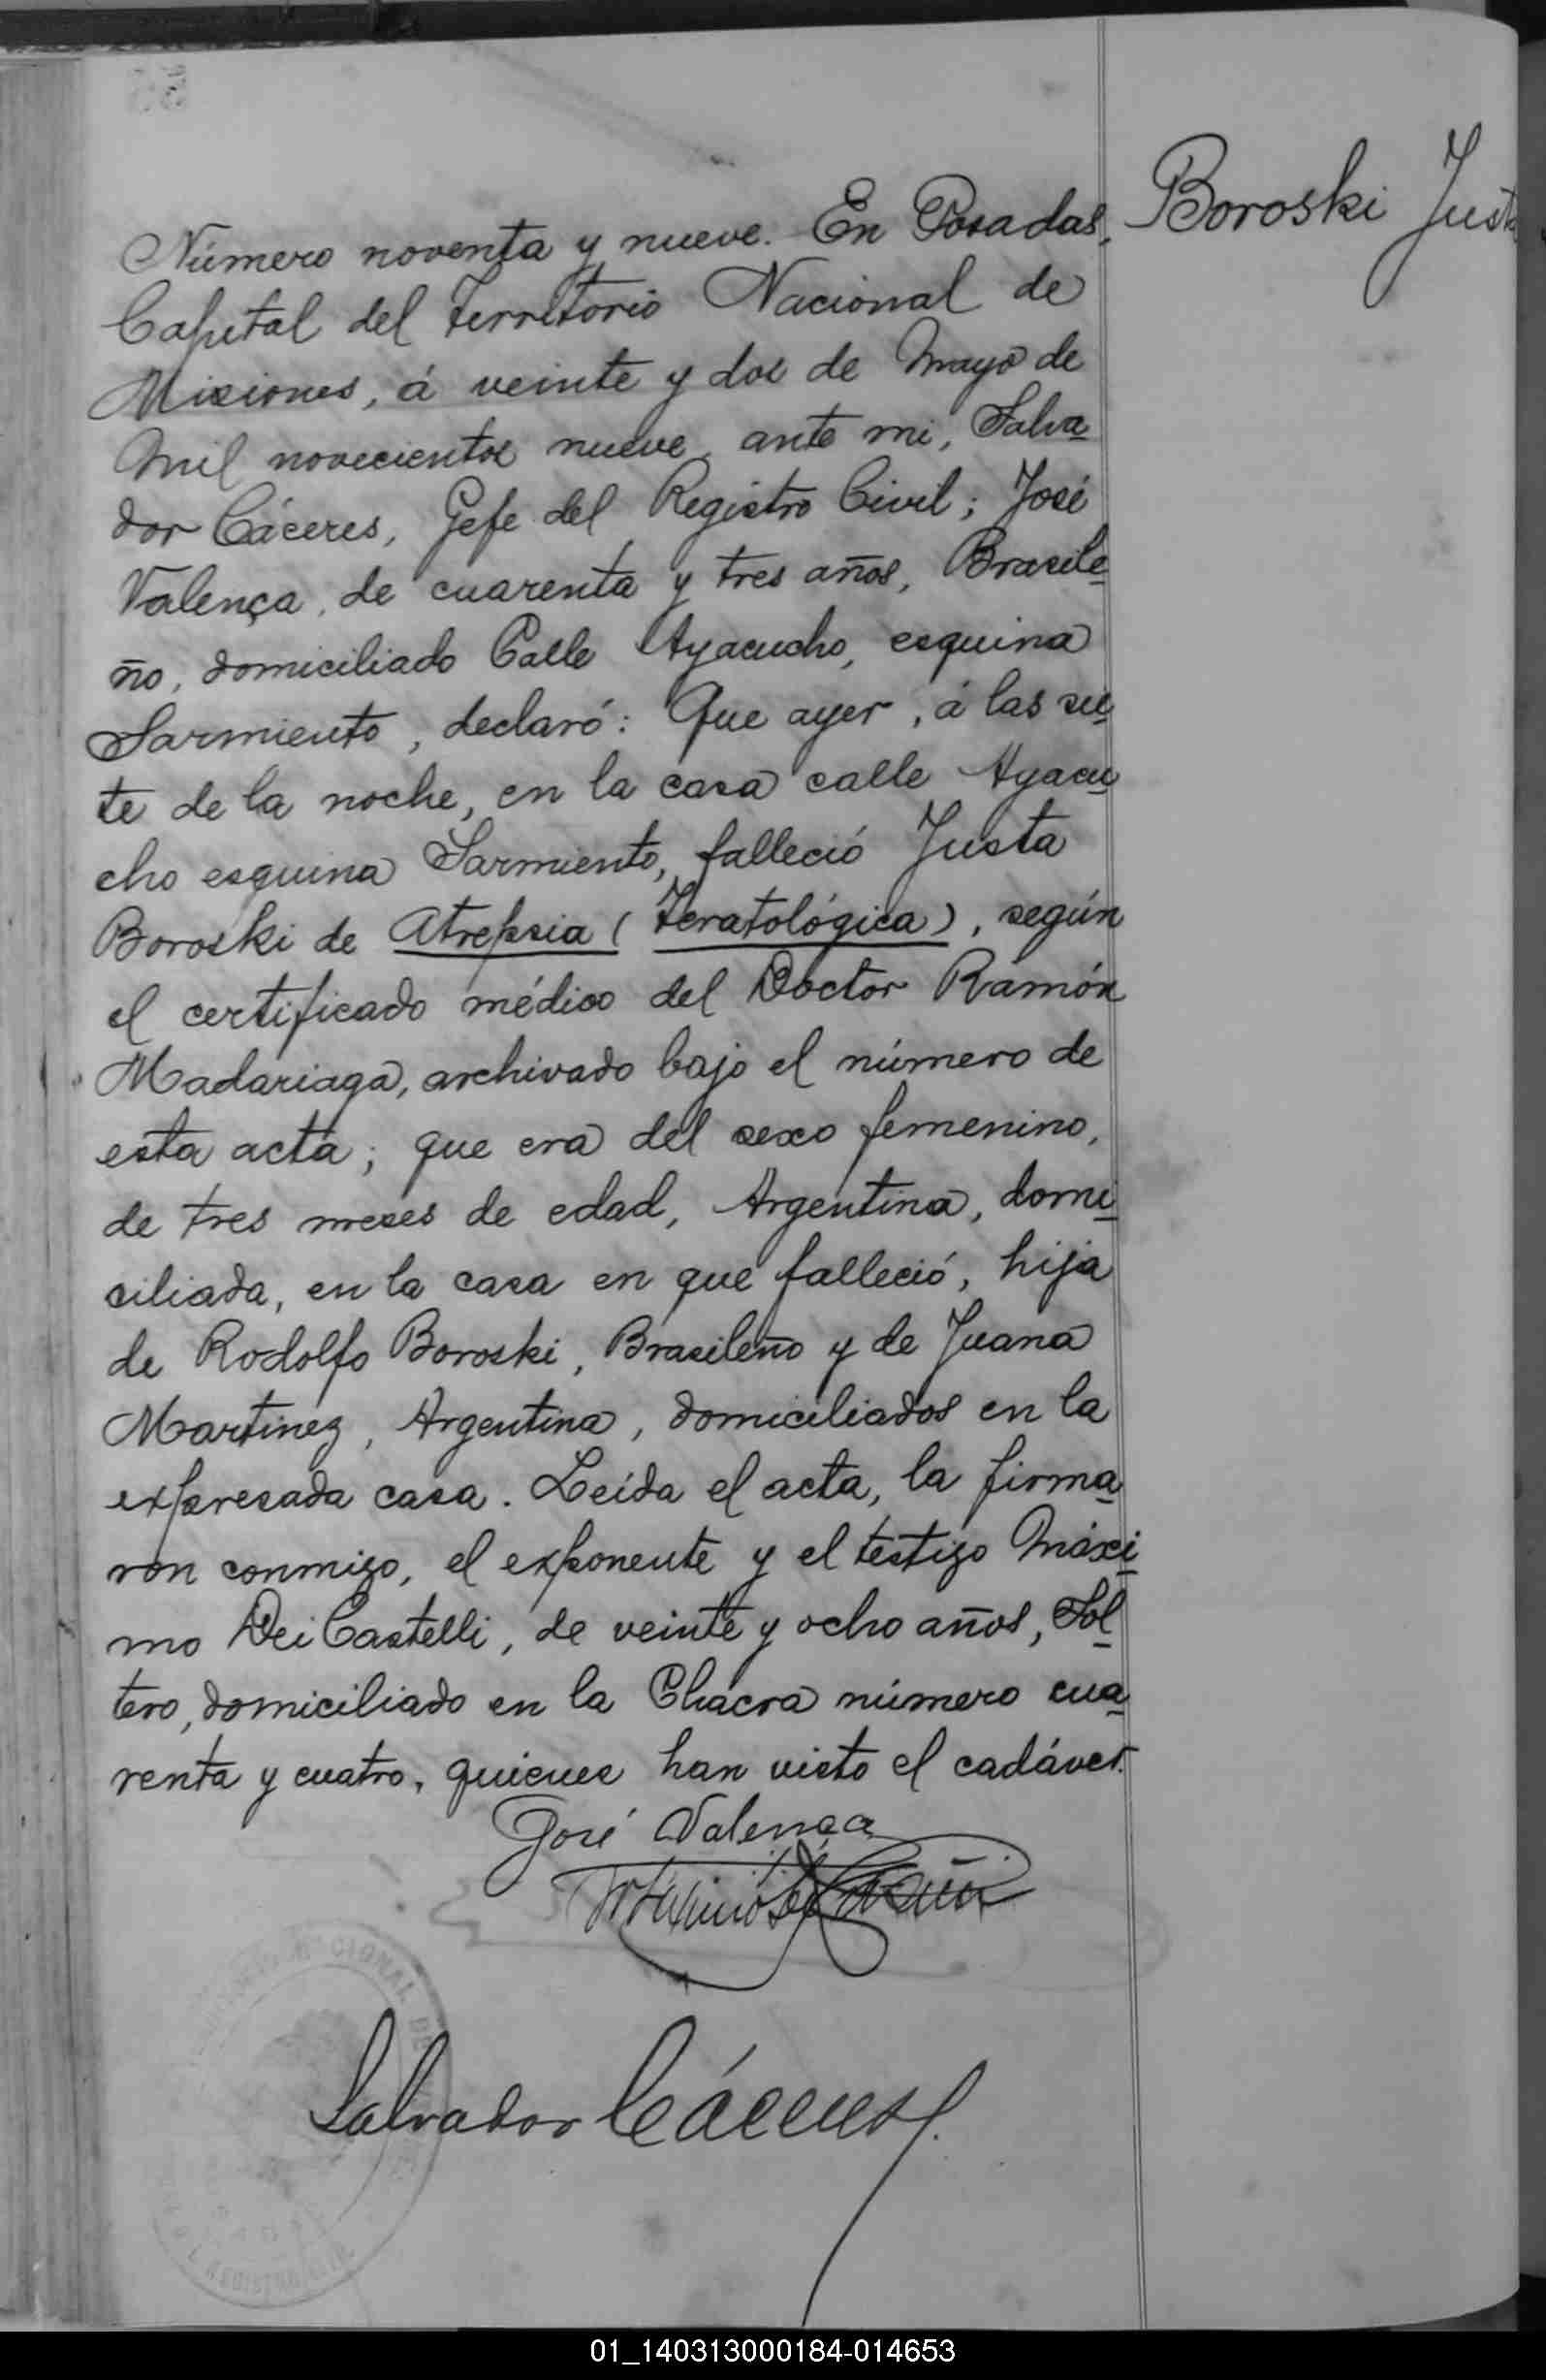 Boroski Justa
Número noventa y nueve. En Posadas,
Capital del Territorio Nacional de
Misiones, á veinte y dos de Mayo de
mil novecientos nueve, ante mi, Salva
dor Cáceres, Gefe del Registro Civil; José
Valença, de cuarenta y tres años, Brasile
ño, domiciliado Calle Ayacucho, esquina
Sarmiento, declaró: Que ayer, á las sie
te de la noche, en la casa calle Ayacu
cho esquina Sarmiento, falleció Justa
Boroski de Atrepsia (Teratológica), según
el certificado médico del Doctor Ramón
Madariaga, archivado bajo el número de
esta acta; que era del sexo femenino,
de tres meses de edad, Argentina, domi
ciliada, en la casa en que falleció, hija
de Rodolfo Boroski, Brasileño y de Juana
Martinez, Argentina, domiciliados en la
expresada casa. Leída el acta, la firma
ron conmigo, el exponente y el testigo Máxi
mo Dei Castelli, de veinte y ocho años, Sol
tero, domiciliado en la Chacra número cua
renta y cuatro, quienes han visto el cadáver.
José Valença
Salvador Cáceres
01_140313000184-014653